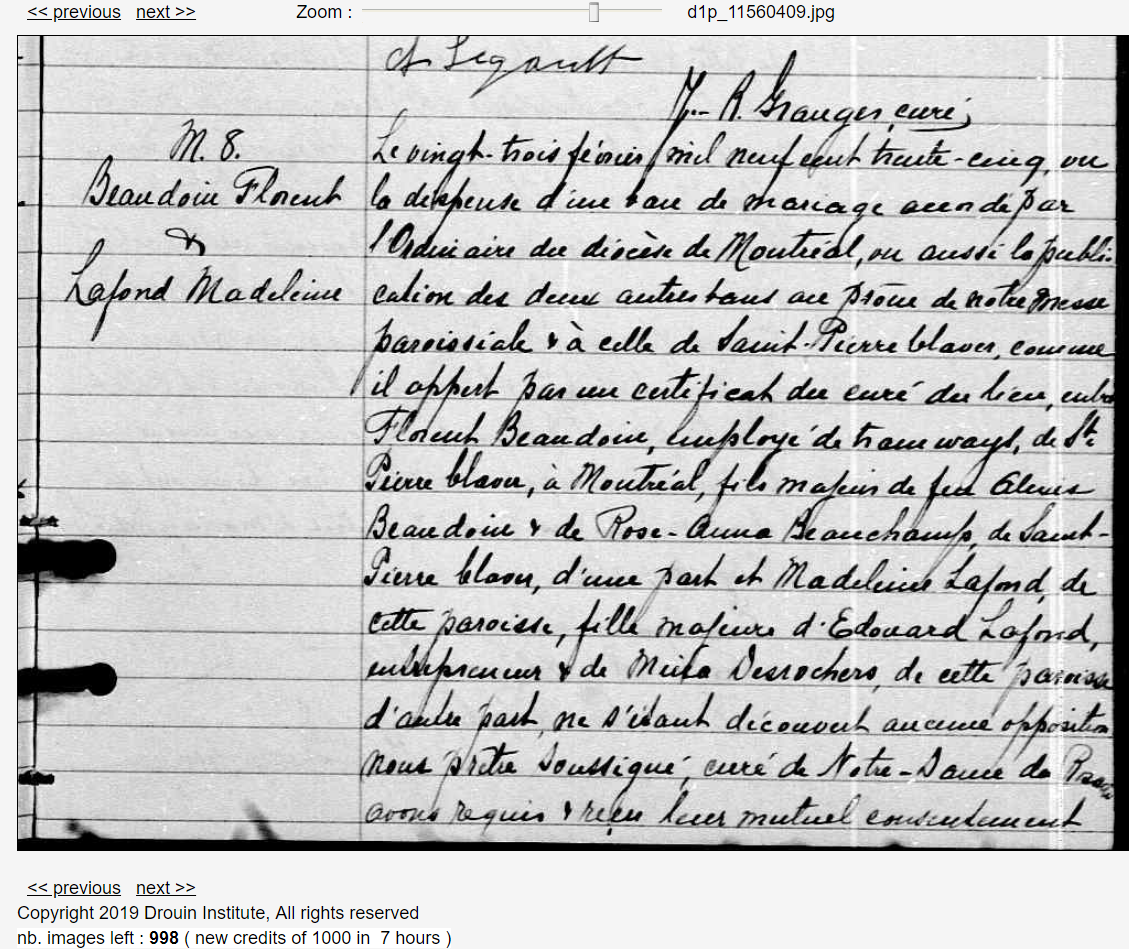 << previous next >> Zoom : d1p_11560409.jpg
A Legault
J.-R. Granger, curé
M. 8.
Beaudoin Florent
&
Lafond Madeleine
Le vingt-trois février mil neuf cent trente-cinq, vu
la dispense d'un ban de mariage accordé par
l'Ordinaire du diocèse de Montréal, vu aussi la publi-
cation des deux autres bans au prône de notre messe
paroissiale & à celle de Saint-Pierre Claver, comme
il appert par un certificat du curé du lieu, entre
Florent Beaudoin, employé de tramways, de St
Pierre Claver, à Montréal, fils majeur de feu
Beaudoin & de Rose-Anna Beauchamp, de Saint-
Pierre Claver, d'une part et Madeleine Lafond, de
cette paroisse, fille majeure d'Edouard Lafond,
entrepreneur & de Desrochers, de cette paroisse
d'autre part, ne s'étant découvert aucune opposition
nous prêtre soussigné, curé de Notre-Dame du
avons requis & reçu leur mutuel consentement
<< previous next >>
Copyright 2019 Drouin Institute, All rights reserved
nb. images left : 998 ( new credits of 1000 in 7 hours )